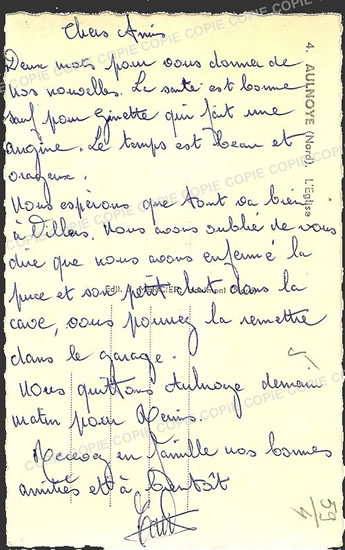 Chers Amis
Deux mots pour vous donner de
nos nouvelles. La santé est bonne
sauf pour Ginette qui fait une
angine. Le temps est beau et
orageux.
Nous espérons que tout va bien
à Villers. Nous avons oublié de vous
dire que nous avons enfermé la
puce et son petit chat dans la
cave, vous pouvez la remettre
dans le garage.
Nous quittons Aulnoye demain
matin pour Reims.
Recevez en famille nos bonnes
amitiés et à bientôt
4. AULNOYE (Nord). L'Eglise
59
COPIE COPIE COPIE COPIE